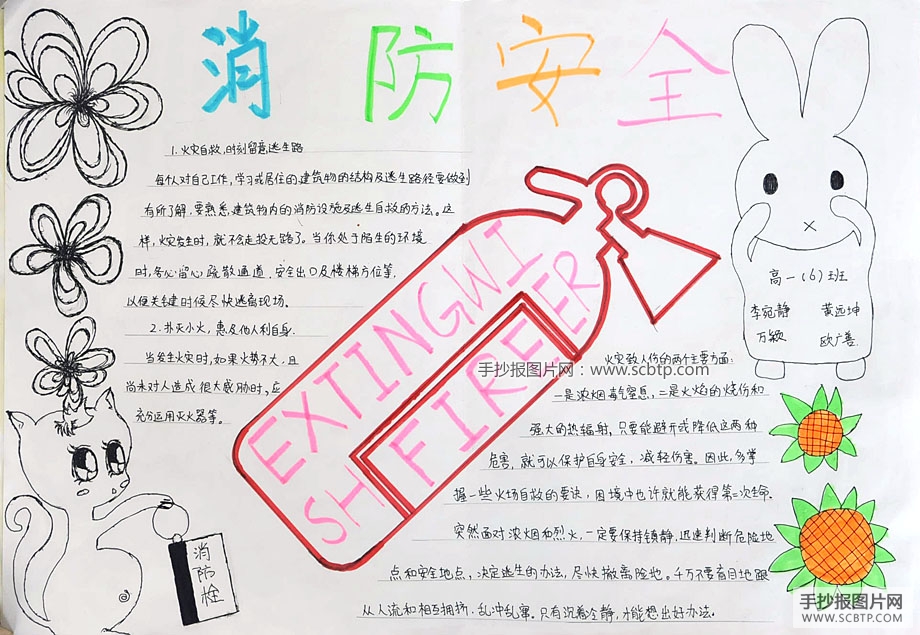 消防安全
1. 火灾自救,时刻留意逃生路
每个人对自己工作,学习或居住的建筑物的结构及逃生路径要做到
有所了解,要熟悉建筑物内的消防设施及逃生自救的方法。这
样,火灾发生时,就不会走投无路了。当你处于陌生的环境
时,务必留心疏散通道,安全出口及楼梯方位等,
以便关键时候尽快逃离现场。
2. 扑灭小火,惠及他人利自身.
当发生火灾时,如果火势不大,且
尚未对人造成很大威胁时,应
充分运用灭火器等。
EXTINGWI
SH FIREER
FIRE
高一(6)班
李宛静 黄远坤
万颖 欧广善
手抄报图片网:www.scbtp.com
火灾致人伤的两个主要方面:
一是浓烟毒气窒息,二是火焰的烧伤和
强大的热辐射,只要能避开或降低这两种
危害,就可以保护自身安全,减轻伤害。因此,多掌
握一些火场自救的要诀,困境中也许就能获得第二次生命.
突然面对浓烟和烈火,一定要保持镇静,迅速判断危险地
点和安全地点,决定逃生的办法,尽快撤离险地。千万不要盲目地跟
从人流和相互拥挤,乱冲乱窜.只有沉着冷静,才能想出好办法.
消防栓
手抄报图片网
WWW.SCBTP.COM